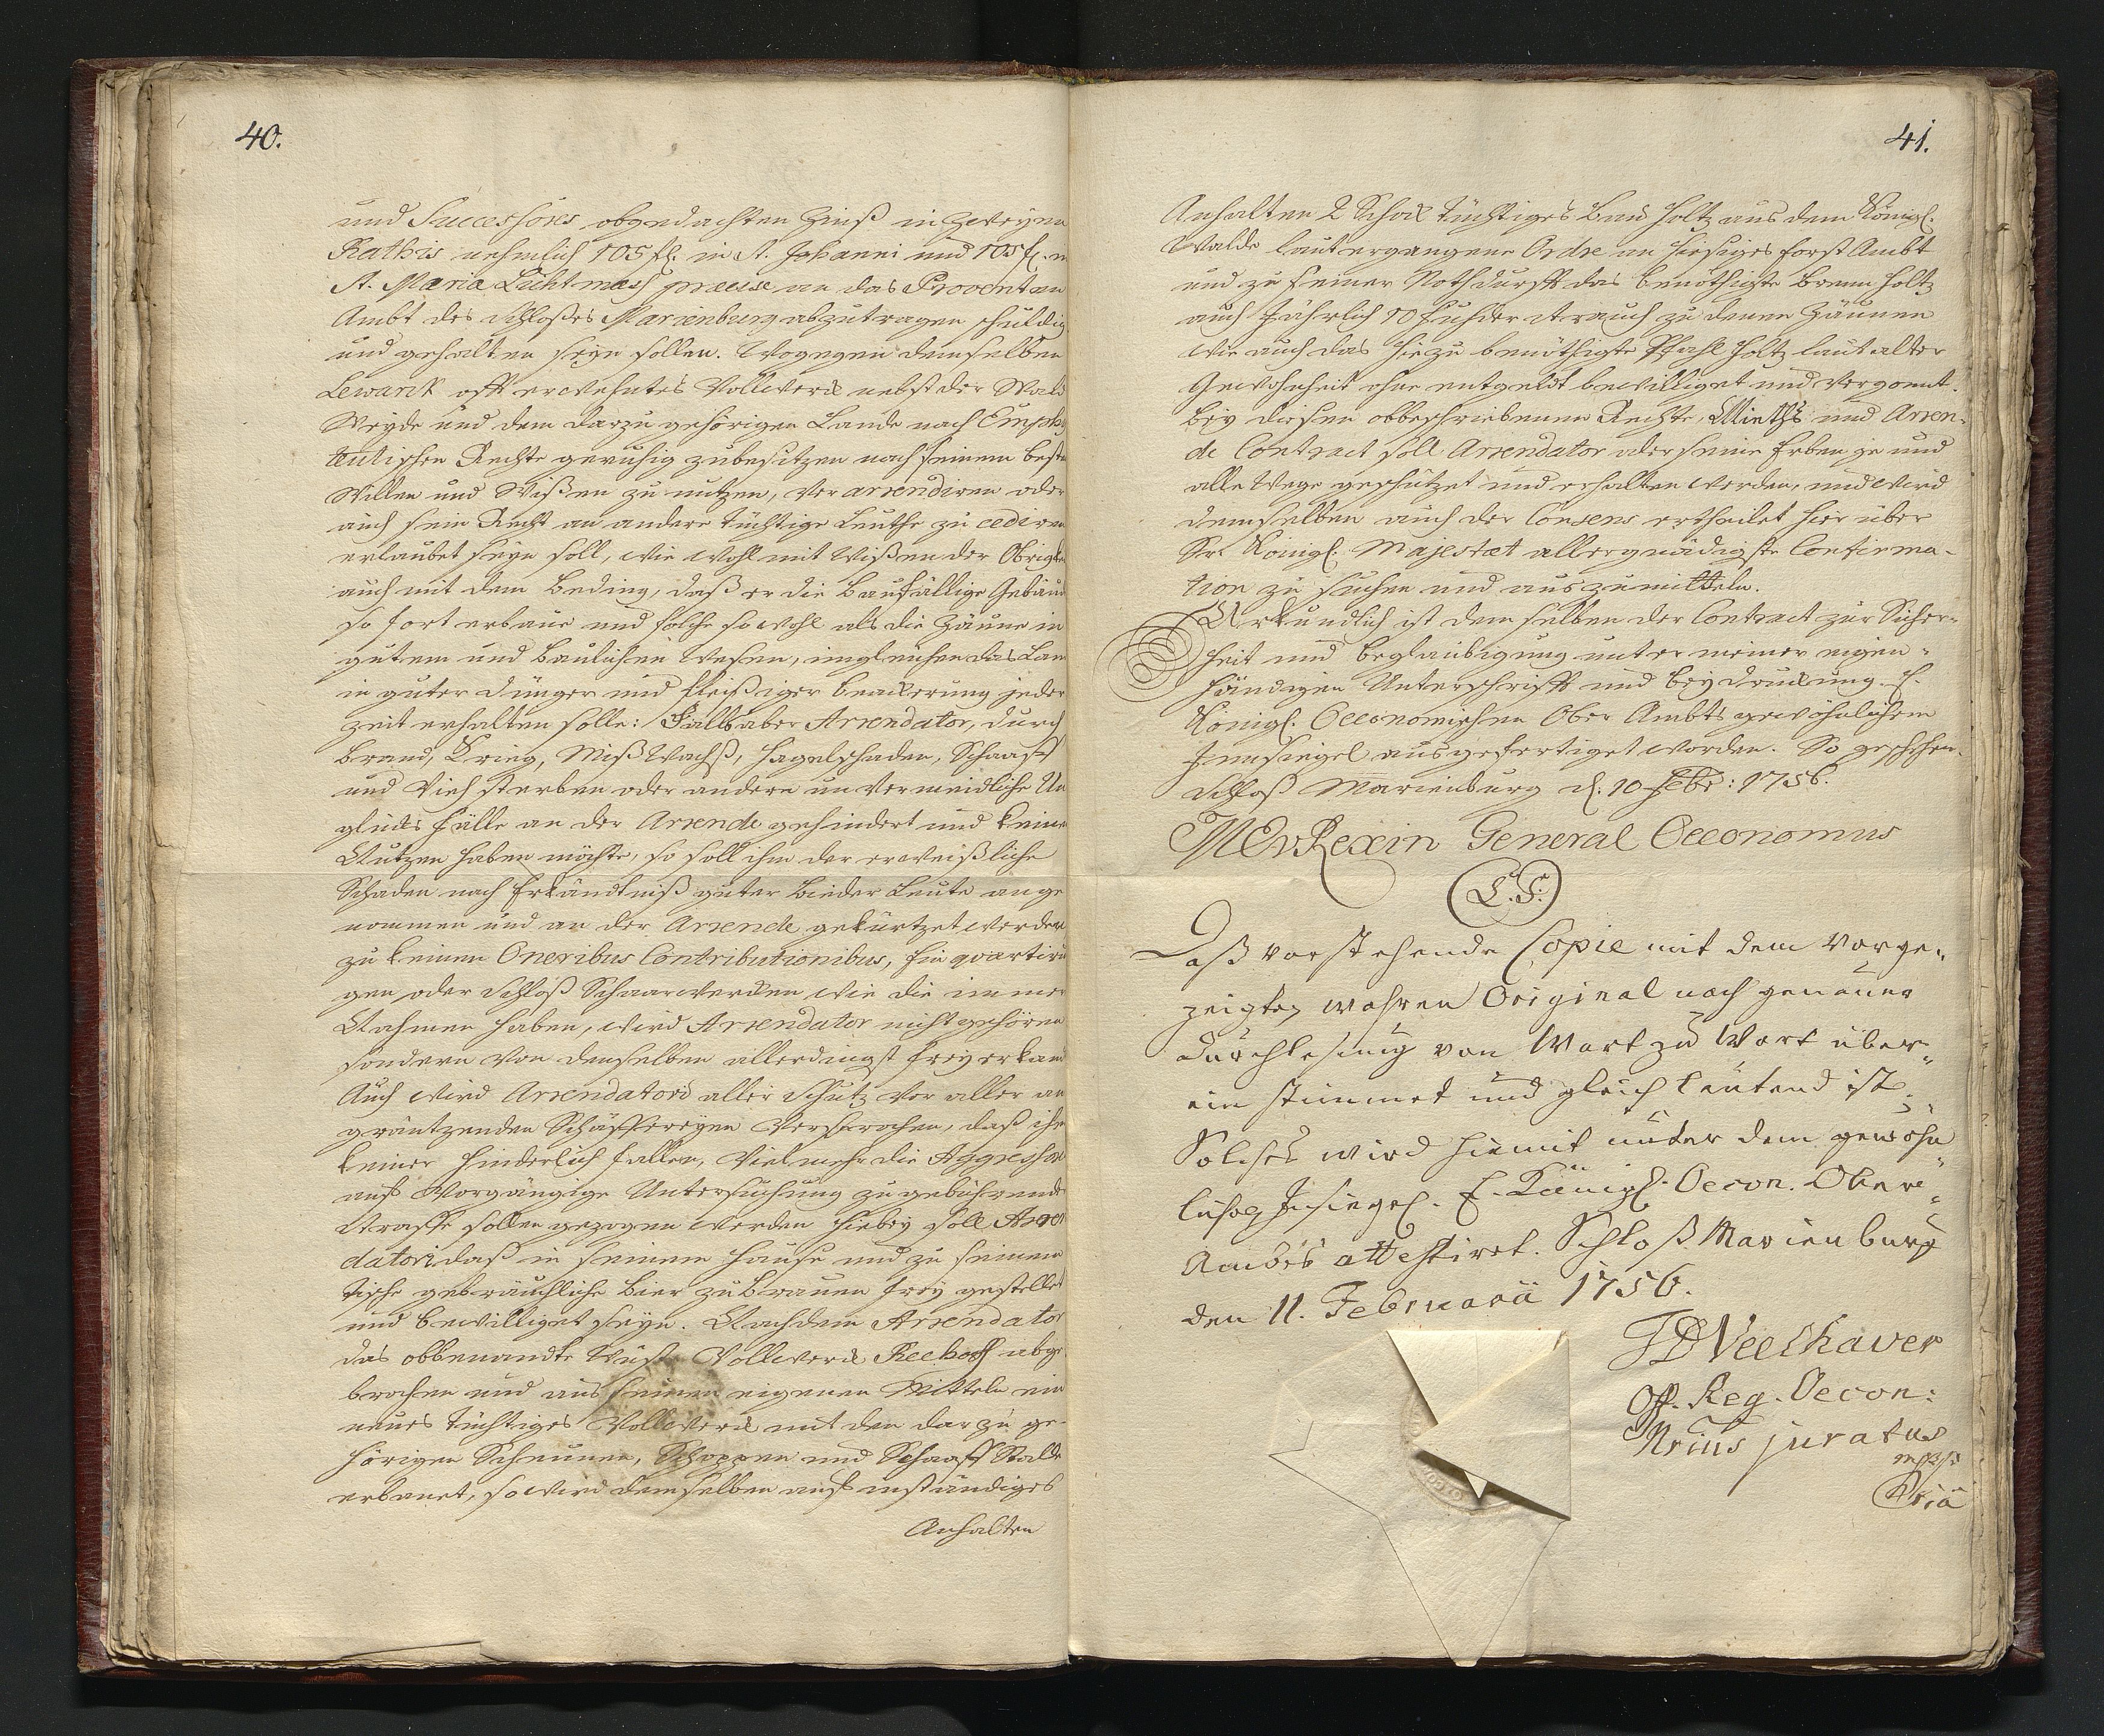 40.
und Successores obgedachten Zinß in Zweyen
Rathis nehmlich 105 fl. in St. Johanni und 105 fl.
St. Maria Lichtmess præcise an das Provent an
Ambt des Schloßes Marienburg abzutragen schuldig
und gehalten seyn sollen. Wogegen demselben
Lewarck offt erwehntes Vollwerck nebst der Wald
Weyde und dem darzu gehörigen Lande nach Emphy
teutischen Rechte geruhig zubesitzen nach seinem best
Willen und Wißen zu nutzen, ver arrendiren oder
auch sein Recht an andere tüchtige Leuthe zu cediren
erlaubet seyn soll, wie wohl mit Wißen der Obrigke
auch mit dem Beding, daß er die Baufällige Gebäud
so fort erbaue und solche so wohl als die Zäune in
gutem und baulichen Wesen, imgleichen das Lan
in guter Dünger und fleißiger beackerung jeder
zeit erhalten solle: Falls aber Arrendator, durch
Brand, Krieg, Miß Wachß, Hagelschaden, Schaaff
und Vieh sterben oder andere un vermeidliche Un
glücks Fälle an der Arrende gehindert und keinen
Nutzen haben möchte, so soll ihm der erweißliche
Schaden nach Erkändtniß guter Bieder Leute ange
nommen und an der Arrende gekürtzet werden
zu keinen Oneribus Contributionibus, Ein quartiru
gen oder Schloß Schaarwercken wie die immer
Nahmen haben, wird Arrendator nicht gehören
sondern von denselben allerdingst frey erkand
Auch wird Arrendatori aller Schutz vor aller an
gräntzenden Schäffereyen versprochen, daß ihm
keiner hinderlich fallen, vielmehr die Aggressores
auf vorgängige Untersuchung zu gebührende
Straffe sollen gezogen werden hiebey soll Arren
datori daß in seinem Hause und zu seinem
Tische gebräuchliche Bier zu brauen frey gestellet
und bewilliget seyn. Nachdem Arrendator
das obbenandte wüste Vollwerck Reehoff abge
brochen und aus seinen eigenen Mitteln ein
neues tüchtiges Vollwerck mit den darzu ge-
hörigen Scheunen, Schoppen und Schaaff Stalle
erbauet, so wird demselben auf inständiges
Anhalten
41.
Anhalten 2 Schock tüchtiges Bau Holtz aus dem Königl.
Walde laut ergangene Ordre an hiesiges Forst Ambt
und zu seiner Nothdurfft das benöthigte Brenn Holtz
auch Jährlich 10 Fuhder Strauch zu denen Zäunen
wie auch das hiezu benöthigte Pfahl Holtz laut alter
Gewohnheit ohne entgeldt bewilliget und vergönnt.
Bey diesen obbeschriebenen Rechte, Mieths und Arren-
de Contract soll Arrendator oder seine Erben je und
alle Wege geschützet und erhalten werden, und wird
demselben auch der Consens ertheilet hier über
Sr. Königl. Majestæt allergnädigste Confirma-
tion zu suchen und auszumitteln.
Urkundlich ist dem selben der Contract zur Sicher-
heit und Beglaubigung unter meiner eigen-
händigen Unterschrifft und Bey druckung E.
Königl. Oeconomischen Ober Ambts gewöhnlichem
Innsiegel ausgefertiget worden. So geschehen
Schloß Marienburg d. 10 Febr: 1756.
MEvRexin General Oeconomus
(L.S.)
Daß vorstehende Copie mit dem vorge-
zeigten wahren Original nach genauer
Durchlesung von Wort zu Wort über-
ein stimmet und gleich lautend ist.
Solches wird hiemit unter dem gewöhn
lichen Insiegel. E. Königl. Oecon. Ober-
Ambts attestiret. Schloß Marienburg
den 11. Februarii 1756.
Veelhaver
Off. Reg. Oecon:
Nrius juratus
mppria